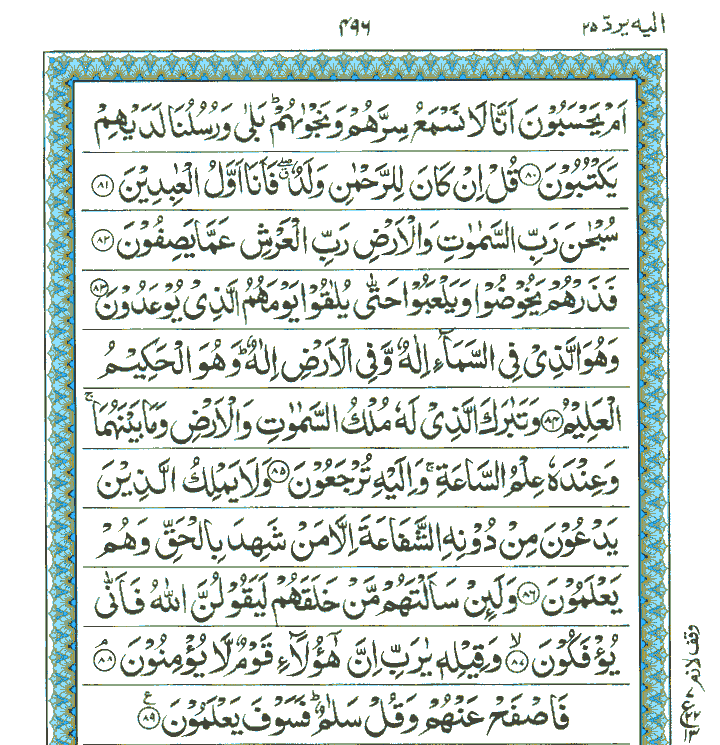 الیہ یرد ۲۵
۴۹۶
اَمْ یَحْسَبُوْنَ اَنَّا لَا نَسْمَعُ سِرَّهُمْ وَ نَجْوٰىهُمْ ؕ بَلٰى وَ رُسُلُنَا لَدَیْهِمْ
یَكْتُبُوْنَ ۸۰ قُلْ اِنْ كَانَ لِلرَّحْمٰنِ وَلَدٌ ۖۗ فَاَنَا اَوَّلُ الْعٰبِدِیْنَ ۸۱
سُبْحٰنَ رَبِّ السَّمٰوٰتِ وَ الْاَرْضِ رَبِّ الْعَرْشِ عَمَّا یَصِفُوْنَ ۸۲
فَذَرْهُمْ یَخُوْضُوْا وَ یَلْعَبُوْا حَتّٰى یُلٰقُوْا یَوْمَهُمُ الَّذِیْ یُوْعَدُوْنَ ۸۳
وَ هُوَ الَّذِیْ فِی السَّمَآءِ اِلٰهٌ وَّ فِی الْاَرْضِ اِلٰهٌ ؕ وَ هُوَ الْحَكِیْمُ
الْعَلِیْمُ ۸۴ وَ تَبٰرَكَ الَّذِیْ لَهٗ مُلْكُ السَّمٰوٰتِ وَ الْاَرْضِ وَ مَا بَیْنَهُمَا ۚ
وَ عِنْدَهٗ عِلْمُ السَّاعَةِ ۚ وَ اِلَیْهِ تُرْجَعُوْنَ ۸۵ وَ لَا یَمْلِكُ الَّذِیْنَ
یَدْعُوْنَ مِنْ دُوْنِهِ الشَّفَاعَةَ اِلَّا مَنْ شَهِدَ بِالْحَقِّ وَ هُمْ
یَعْلَمُوْنَ ۸۶ وَ لَىِٕنْ سَاَلْتَهُمْ مَّنْ خَلَقَهُمْ لَیَقُوْلُنَّ اللّٰهُ فَاَنّٰى
یُؤْفَكُوْنَ ۙ ۸۷ وَ قِیْلِهٖ یٰرَبِّ اِنَّ هٰۤؤُلَآءِ قَوْمٌ لَّا یُؤْمِنُوْنَ ۘ ۸۸
فَاصْفَحْ عَنْهُمْ وَ قُلْ سَلٰمٌ ؕ فَسَوْفَ یَعْلَمُوْنَ ۸۹ ع
وقف لازم